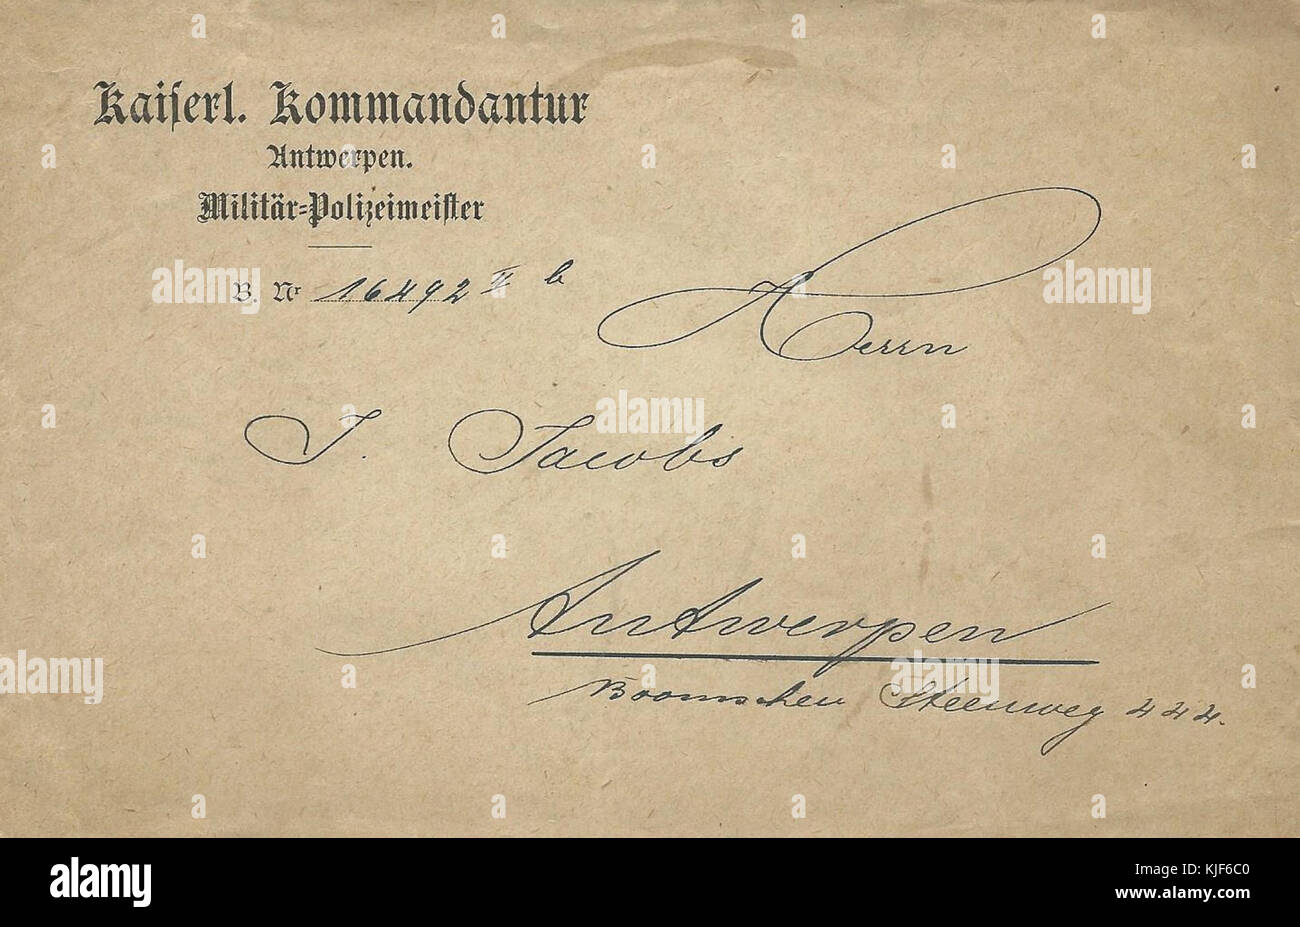 Kaiserl. Kommandantur
Antwerpen.
Militär=Polizeimeister
B. Nr 16492 II b
Herrn
J. Jacobs
Antwerpen
Boomschen Steenweg 444.
alamy
Image ID: KJF6C0
www.alamy.com